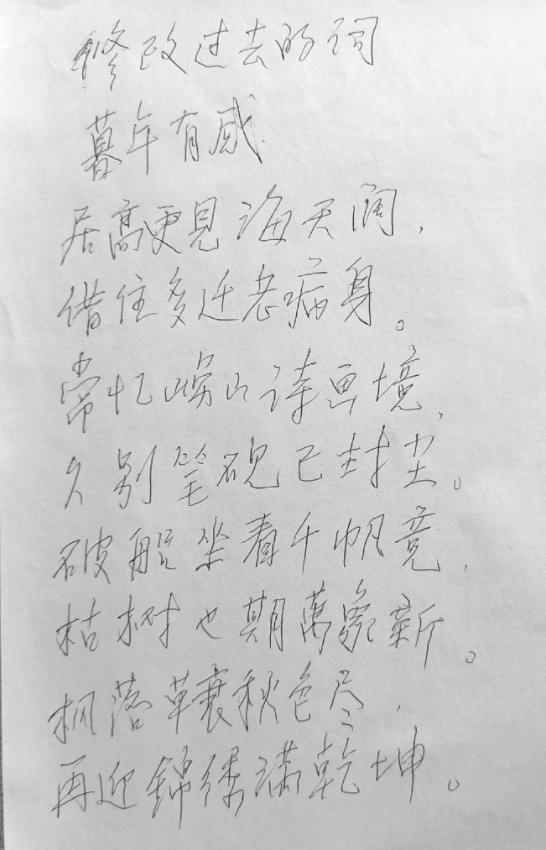 修改过去的词
暮年有感
居高更見海天阔，
借住多迁老病身。
常忆崂山诗画境，
久别笔砚已封尘。
破船坐看千帆竞，
枯树也期萬象新。
枫落草衰秋色尽，
再迎錦绣满乾坤。